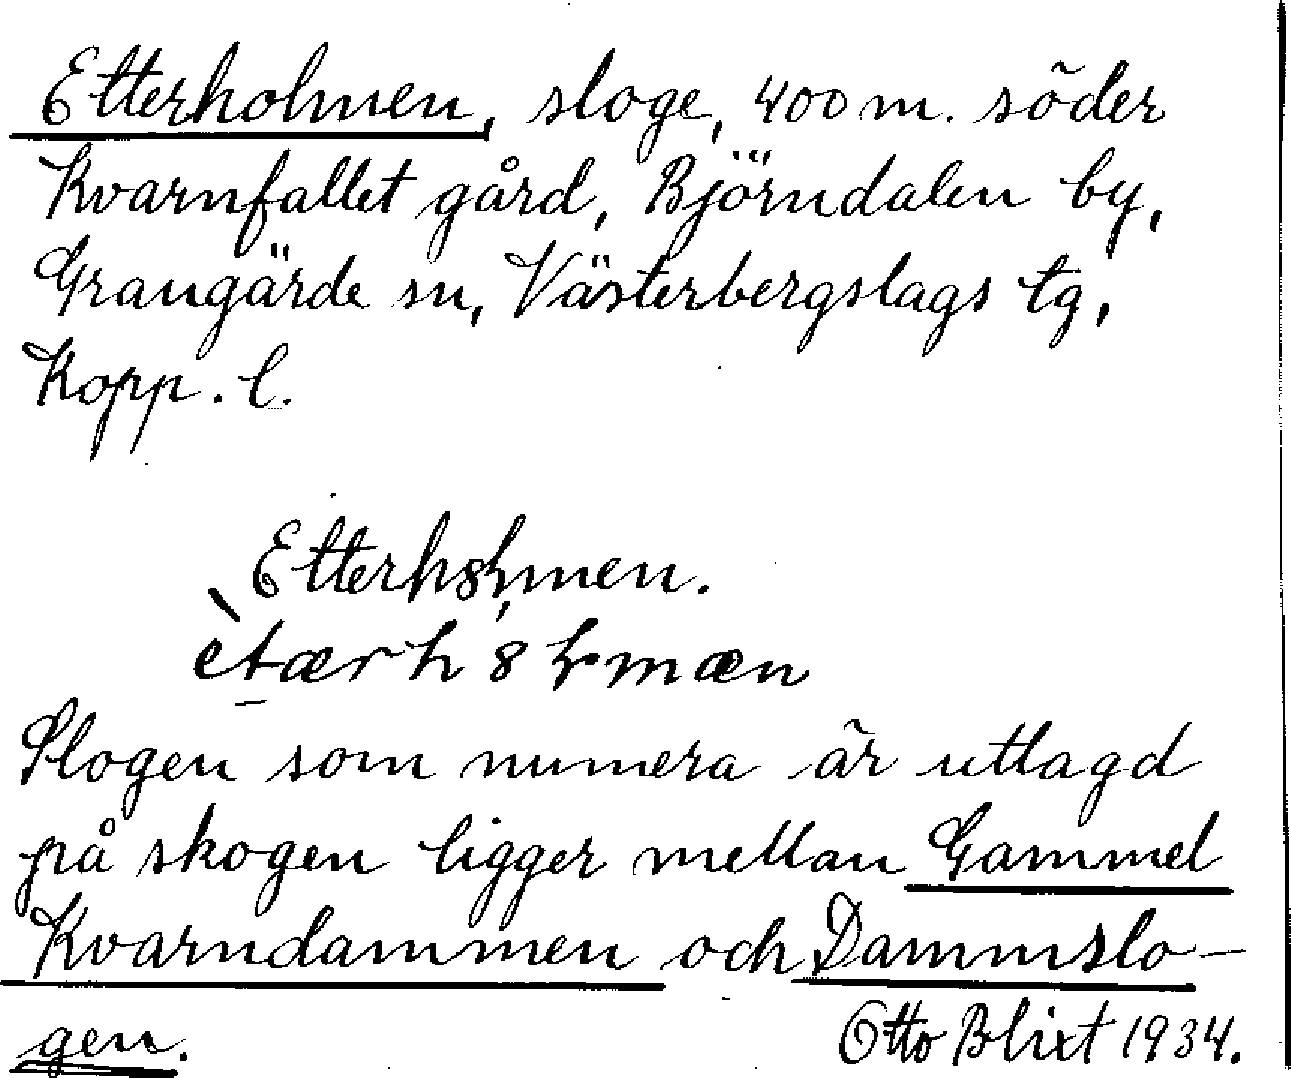 Etterholmen, sloge, 400 m. söder
Kvarnfallet gård, Björndalen by,
Grangärde sn, Västerbergslags tg,
Kopp. l.
Etterh8ɽmen.
ètærh8ɽmæn
Slogen som numera är utlagd
på skogen ligger mellan Gammel
Kvarndammen och Dammslo-
gen.
Otto Blixt 1934.